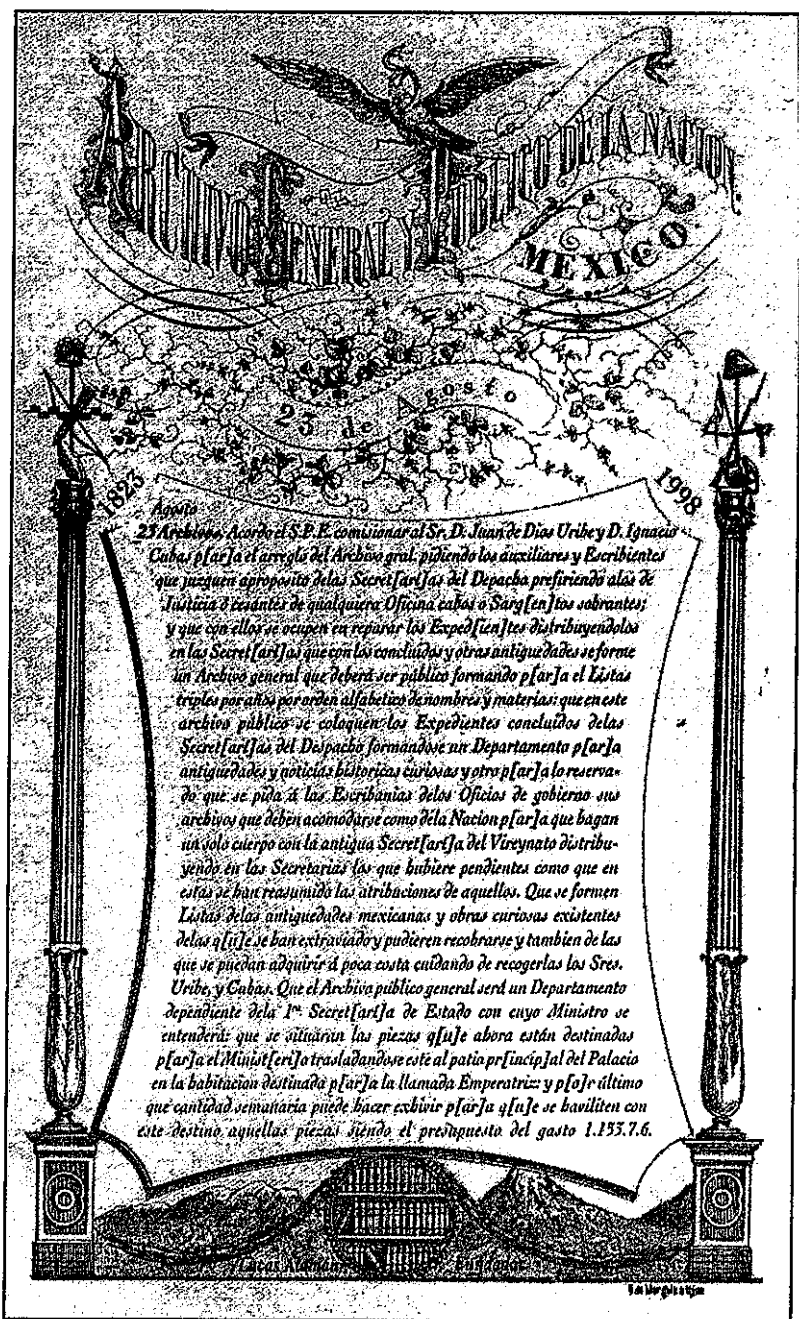 ARCHIVO GENERAL Y PÚBLICO DE LA NACION
MEXICO
23 de Agosto
1823
1998
Agosto
23 Archivos, Acordo el S.P.E. comisionar al Sr. D. Juan de Dios Uribe y D. Ignacio
Cubas p[ar]a el arreglo del Archivo gral. pidiendo los auxiliares y Escribientes
que juzguen aproposito delas Secret[arí]as del Depacha prefiriendo alas de
Justicia ó cesantes de qualquiera Oficina cabos ó Sarg[en]tos sobrantes;
y que con ellos se ocupen en reparar los Exped[ien]tes distribuyendolos
en las Secret[arí]as que con los concluidos y otras antiguedades se forme
un Archivo general que deberá ser público formando p[ar]a el Listas
triples por años por orden alfabetico de nombres y materias: que en este
archivo público se coloquen los Expedientes concluidos delas
Secret[arí]as del Despacho formandose un Departamento p[ar]a
antiguedades y noticias historicas curiosas y otro p[ar]a lo reserva-
do que se pida á las Escribanias delos Oficios de gobierno sus
archivos que deben acomodarse como dela Nacion p[ar]a que hagan
un solo cuerpo con la antigua Secret[arí]a del Vireynato distribu-
yendo en las Secretarias los que hubiere pendientes como que en
estas se han reasumido las atribuciones de aquellos. Que se formen
Listas delas antiguedades mexicanas y obras curiosas existentes
delas q[u]e se han extraviado y pudieren recobrarse y tambien de las
que se puedan adquirir á poca costa cuidando de recogerlas los Sres.
Uribe, y Cubas. Que el Archivo público general será un Departamento
dependiente dela 1ª Secret[arí]a de Estado con cuyo Ministro se
entenderá: que se situarán las piezas q[u]e ahora están destinadas
p[ar]a el Minist[eri]o trasladandose este al patio pr[incip]al del Palacio
en la habitacion destinada p[ar]a la llamada Emperatriz: y p[o]r último
que cantidad semanaria puede hacer exhivir p[ar]a q[u]e se haviliten con
este destino aquellas piezas siendo el presupuesto del gasto 1.153.7.6.
Lucas Alamán Fundador